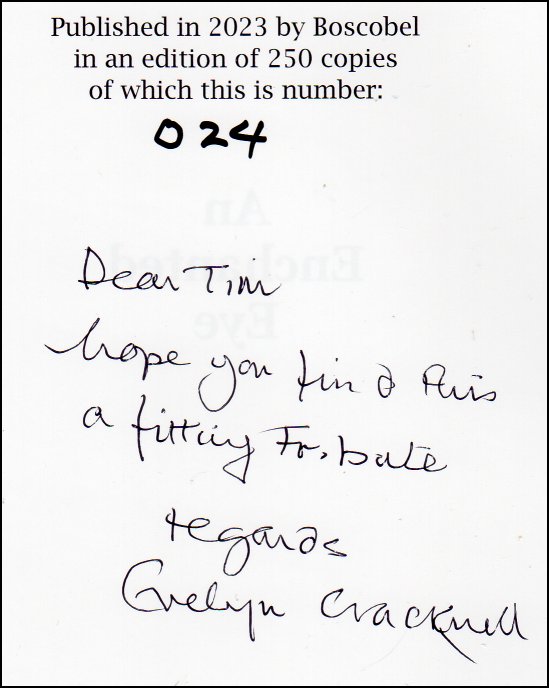 Published in 2023 by Boscobel
in an edition of 250 copies
of which this is number:
024
An
Enchanted
Eye
Dear Tim
hope you find this
a fitting Tribute
regards
Evelyn Cracknell